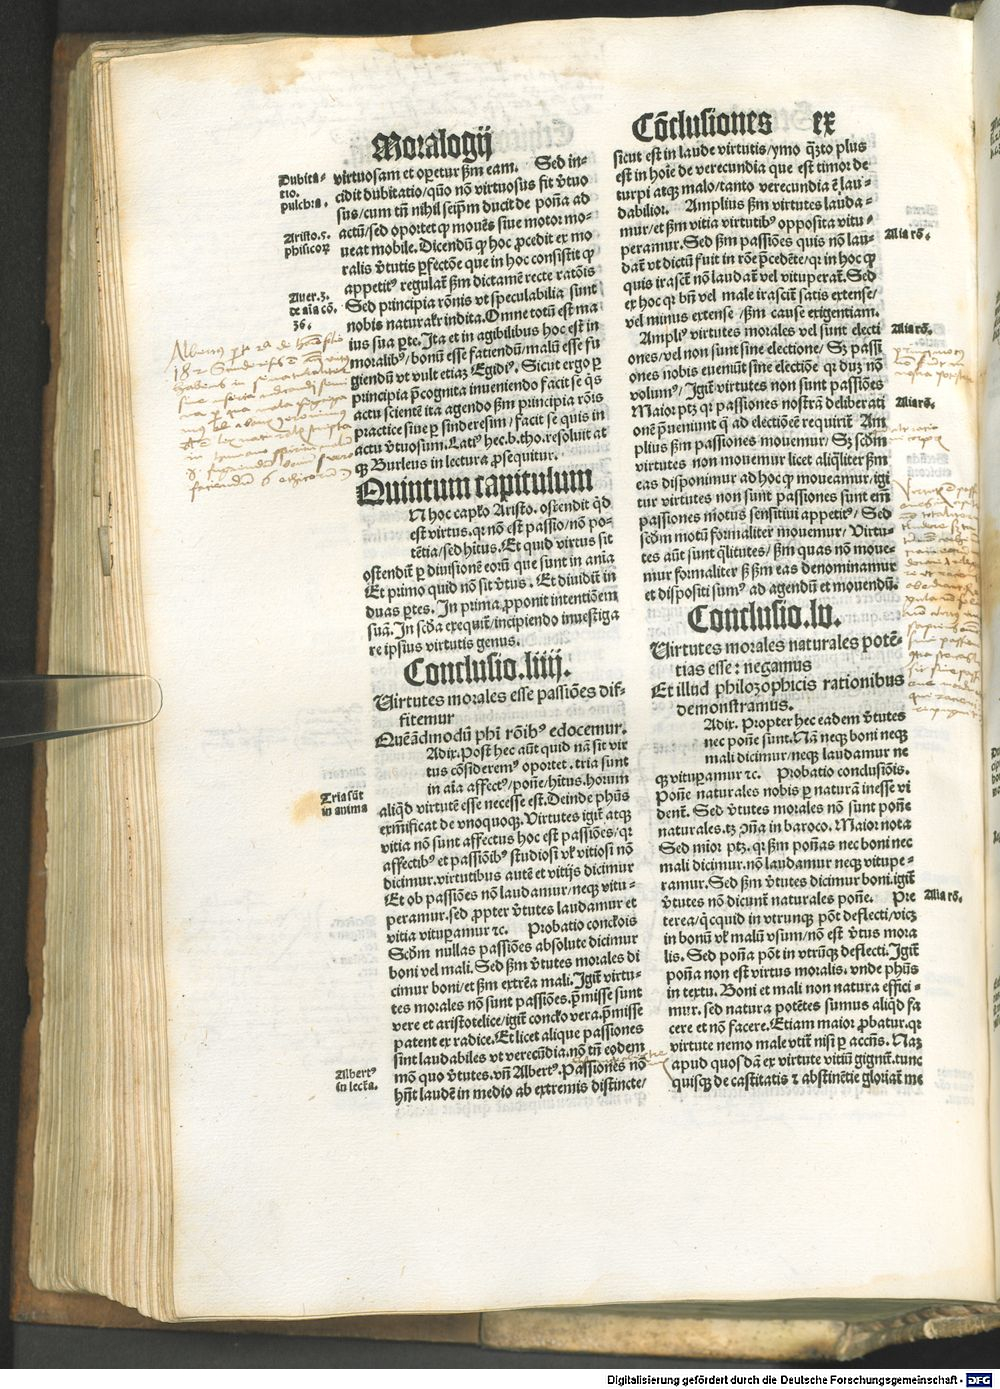 Moralogij
Cõclusiones ex
Dubita-
tio.
pulchra.
Aristo.5.
phisicoꝝ
Auer.3.
de aĩa cõ.
36.
virtuosam et oꝑetur ẜm eam. Sed in-
cidit dubitatio/quõ nõ virtuosus fit ꝟtuo
sus/cum tñ nihil seip̃m ducit de poña ad
actũ/sed oportet ꝙ mouẽs siue motor mo-
ueat mobile. Dicendũ ꝙ hoc ꝓcedit ex mo
ralis ꝟtutis ꝑfectõe que in hoc consistit ꝙ
appetitꝰ regulat̃ ẜm dictamẽ recte ratõis
Sed principia rõnis vt speculabilia sunt
nobis naturalr̃ indita. Omne totũ est ma
ius sua ꝑte. Ita et in agibilibus hoc est in
moralibꝰ/bonũ esse fatiendũ/malũ esse fu
giendũ vt vult etiaz Egidꝰ. Sicut ergo ꝑ
principia p̃cognita inueniendo facit se q̃s
actu scientẽ ita agendo ẜm principia rõis
practice siue ꝑ sinderesim/facit se quis in
actu ꝟtuosum. Latiꝰ hec.b.tho.resoluit at
qꝫ Burleus in lectura ꝓsequitur.
Quintum capitulum
N hoc capĩo Aristo. ostendit qd̃
est virtus. qꝛ nõ est passio/nõ po-
tẽtia/sed hitus. Et quid virtus sit
ostendit̃ ꝑ diuisionẽ eorũ que sunt in anĩa
Et primo quid nõ sit ꝟtus. Et diuidit̃ in
duas ꝑtes. In prima ꝓponit intentiõem
suã. In scd̃a exequit̃/incipiendo inuestiga
re ipsius virtutis genus.
Conclusio.liiij.
Virtutes morales esse passiões dif-
fitemur
Quẽadmodũ phĩ rõibꝰ edocemur.
Tria sũt
in anima
Adiẜ. Post hec aũt quid nã sit vir
tus cõsideremꝰ oportet. tria sunt
in aĩa affectꝰ/poñe/hitus. horum
aliqd̃ virtutẽ esse necesse est. Deinde phũs
exm̃ificat de vnoquoqꝫ. Virtutes igit̃ atqꝫ
vitia nõ sunt affectus hoc est passiões/qꝛ
affectibꝰ et passiõibꝰ studiosi vl̃ vitiosi nõ
dicimur. virtutibus autẽ et vitijs dicimur
Et ob passiões nõ laudamur/neqꝫ vitu-
peramur. sed ꝓpter ꝟtutes laudamur et
vitia vituꝑamur ꝛc. Probatio conclõis
Scd̃m nullas passiões absolute dicimur
boni vel mali. Sed ẜm ꝟtutes morales di
cimur boni/et ẜm extrẽa mali. Igit̃ virtu-
tes morales nõ sunt passiões. p̃misse sunt
vere et aristotelice/igit̃ conclo vera. p̃misse
patent ex radice. Et licet alique passiones
sint laudabiles vt verecũdia. nõ tñ eodem
Albertꝰ
in lectra.
mõ quo ꝟtutes. vñ Albertꝰ. Passiones nõ
hñt laudẽ in medio ab extremis distincte/
sicut est in laude virtutis/ymo qʒto plus
est in hoĩe de verecundia que est timor de
turpi atqꝫ malo/tanto verecundia ẽ lau-
dabilior. Amplius ẜm virtutes lauda-
mur/et ẜm vitia virtutibꝰ opposita vitu-
Alia rõ.
peramur. Sed ẜm passiões quis nõ lau-
dat̃ vt dictũ fuit in rõe p̃cedẽte/qꝛ in hoc ꝙ
quis irascit̃ nõ laudat̃ vel vituperat̃. Sed
ex hoc qꝛ bñ vel male irascit̃ satis extense/
vel minus extense /ẜm cause exigentiam.
Alia rõ.
Ampliꝰ virtutes morales vel sunt electi
ones/vel non sunt sine electione/ Sʒ passi
ones nobis eueniũt sine electiõe qꝛ duʒ nõ
volumꝰ/ Igit̃ virtutes non sunt passiões
Alia rõ.
Maior ptʒ qꝛ passiones nostrã deliberati
onẽ p̃ueniunt q̃ ad electiõeẽ requirit̃ Am
plius ẜm passiones mouemur/ Sʒ scd̃m
virtutes non mouemur licet aliqͣliter ẜm
eas disponimur ad hoc ꝙ moueamur/igi
tur virtutes non sunt passiones sunt em̃
passiones motus sensitiui appetitꝰ/ Sed
scd̃m motũ formaliter mouemur/ Virtu-
tes aũt sunt q̃litutes/ ẜm quas nõ moue-
mur formaliter ẜ ẜm eas denominamur
et dispositi sumꝰ ad agendũ et mouendũ.
Conclusio.lv.
Virtutes morales naturales potẽ-
tias esse: negamus
Et illud philozophicis rationibus
demonstramus.
Adiẜ. Propter hec eadem ꝟtutes
nec poñe sunt. Nã neqꝫ boni neqꝫ
mali dicimur/neqꝫ laudamur ne
qꝫ vituꝑamur ꝛc. Probatio conclusiõis.
Poñe naturales nobis ꝑ naturã inesse vi
dent̃. Sed ꝟtutes morales nõ sunt poñe
naturales. tʒ ↄña in baroco. Maior nota
Sed mior ptʒ. qꝛ ẜm poñas nec boni nec
mali dicimur. nõ laudamur neqꝫ vitupe-
ramur. Sed ẜm ꝟtutes dicimur boni. igit̃
Alia rõ.
ꝟtutes nõ dicunt̃ naturales poñe. Pre
terea/q̇cquid in vtrunqꝫ põt deflecti/vicʒ
in bonũ vl̃ malũ vsum/nõ est ꝟtus mora
lis. Sed poña põt in vtrũqꝫ deflecti. Igit̃
poña non est virtus moralis. vnde phũs
in textu. Boni et mali non natura effici-
mur. sed natura potẽtes sumus aliqd̃ fa
cere et nõ facere. Etiam maior ꝓbatur. qꝛ
virtute nemo male vtit̃ nisi ꝑ accñs. Naʒ
apud quosdã ex virtute vitiũ gignit̃. tunc
quisqʒ de castitatis ⁊ abstinẽtie gloriat̃ me
Digitalisierung gefördert durch die Deutsche Forschungsgemeinschaft - DFG